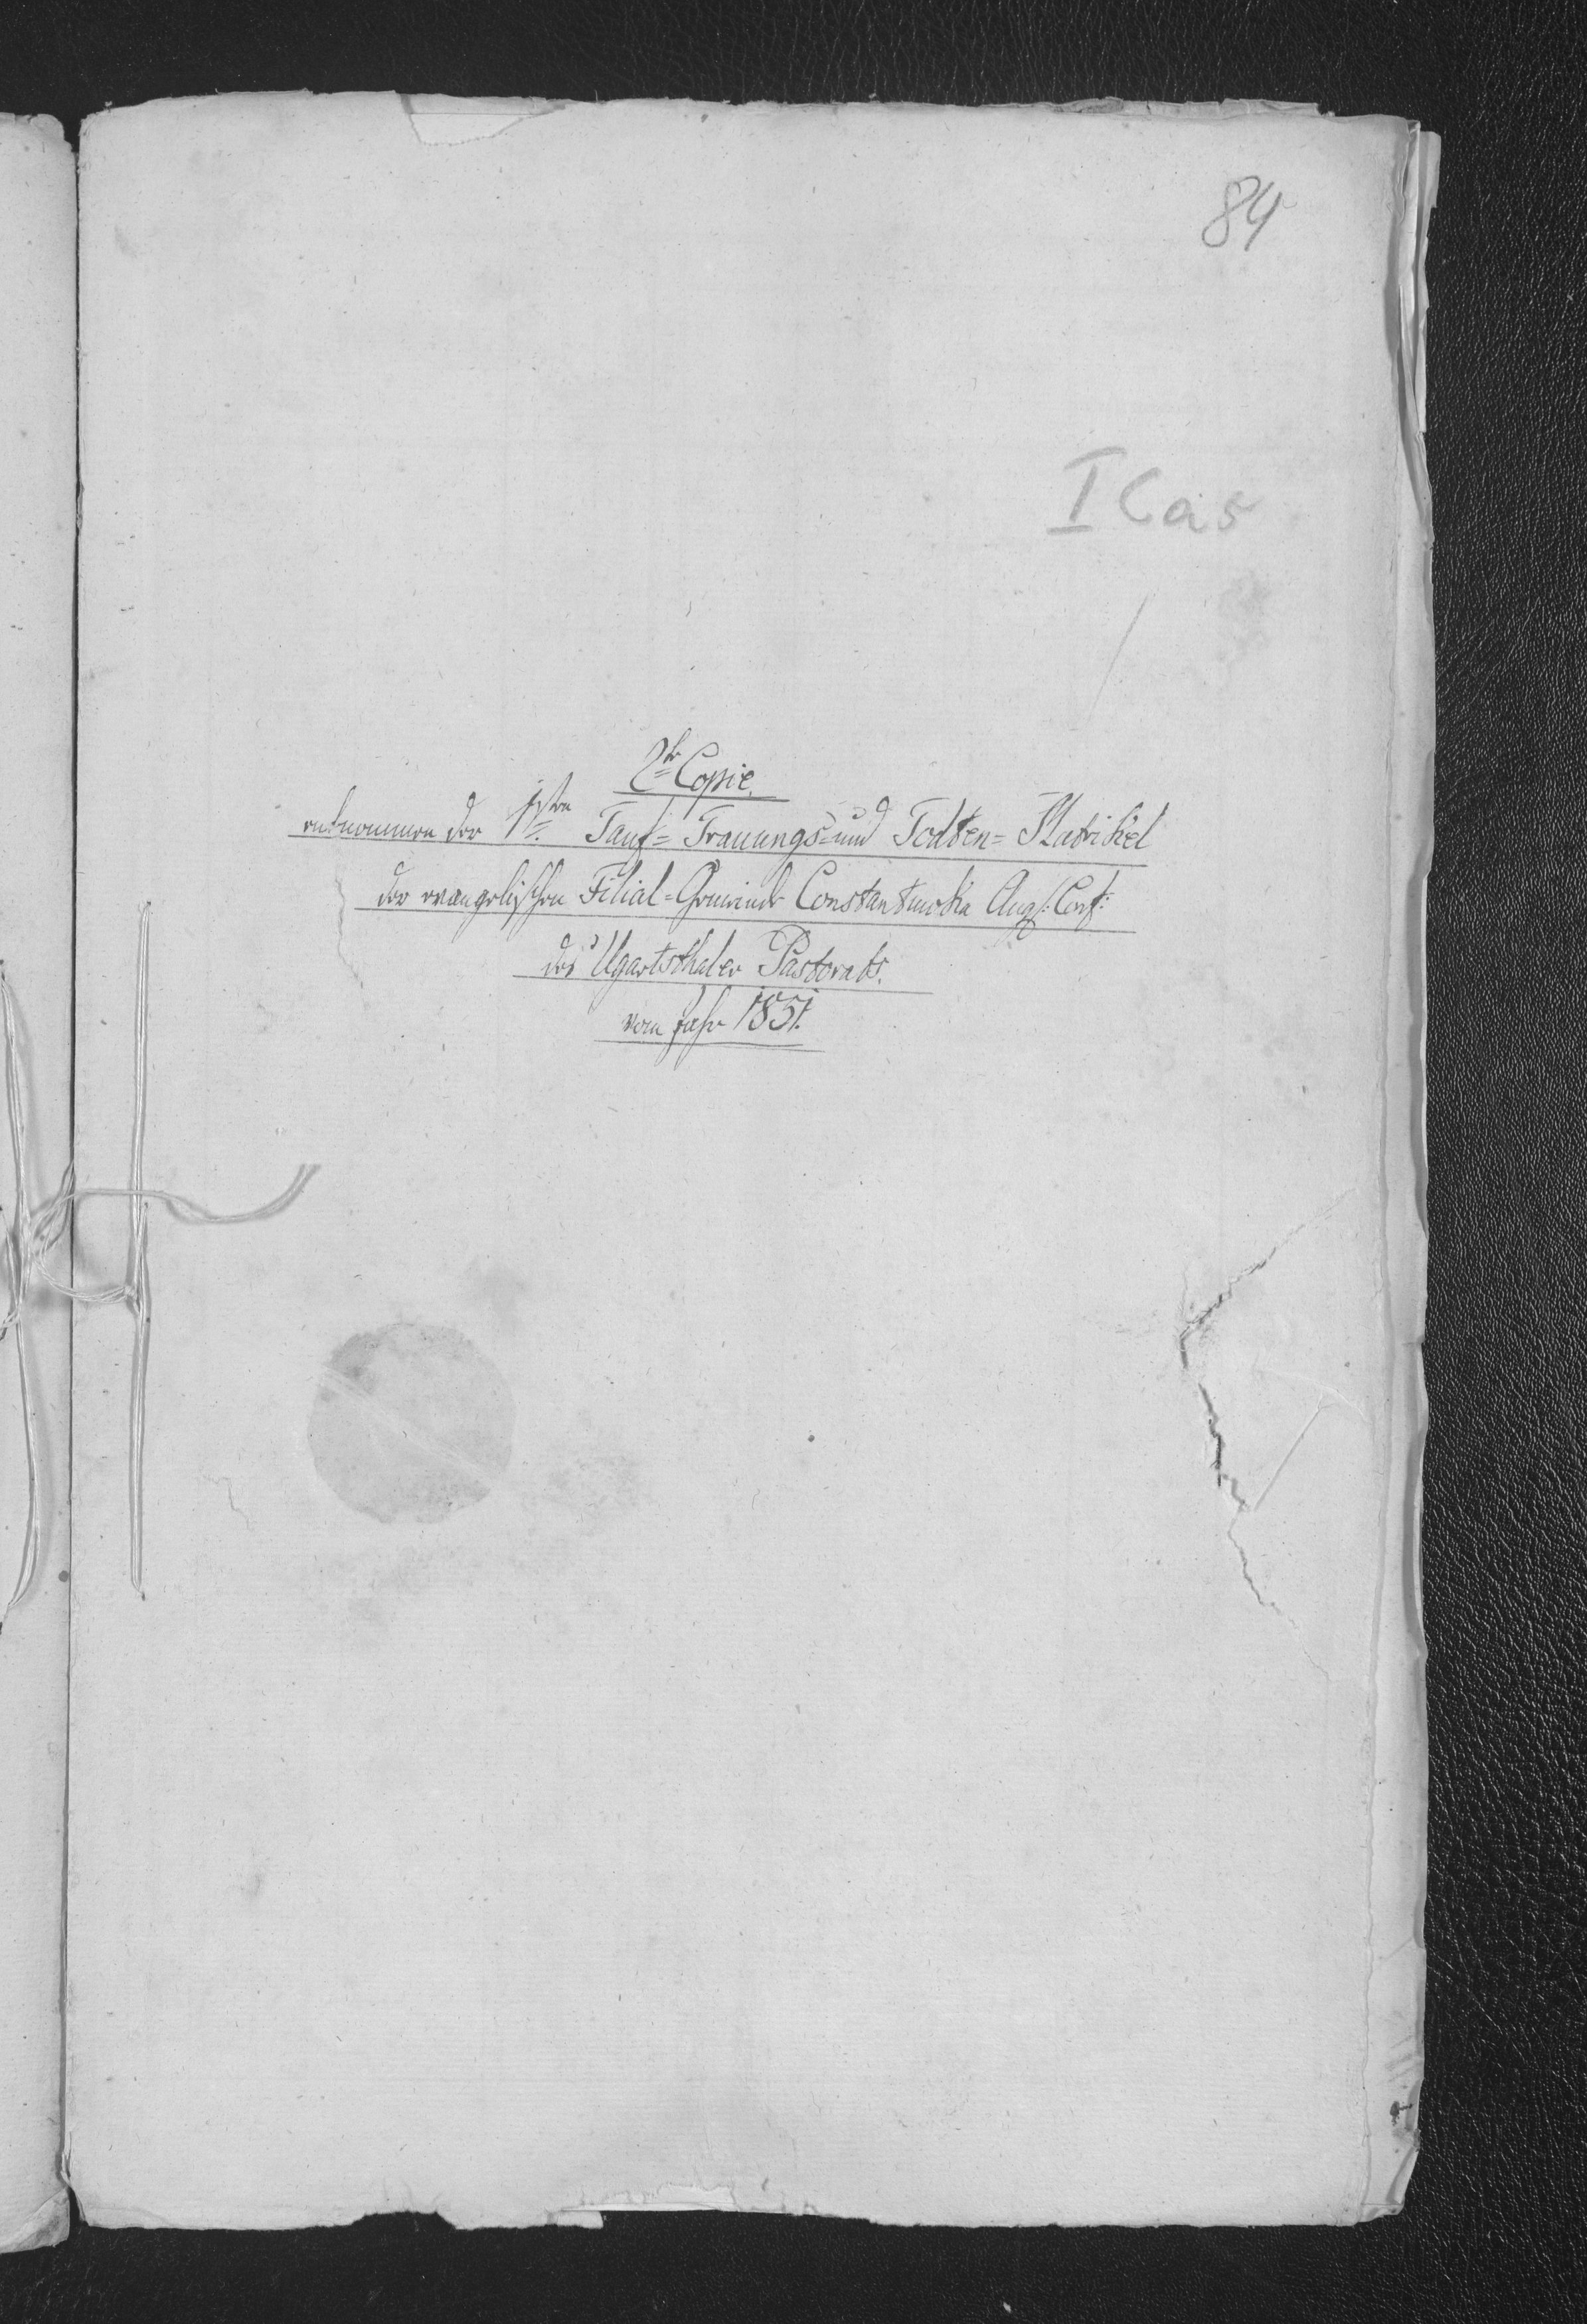 84
I Cas
2te Copie.
entnommen der 1sten Tauf= Trauungs= und Todten= Matrikel
der evangelischen Filial=Gemeinde Constantinowka Augs: Conf:
des Ugartsthaler Pastorats.
vom Jahr 1851.